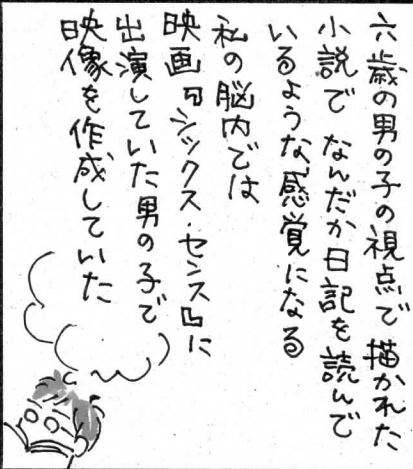 六歳の男の子の視点で描かれた
小説で なんだか日記を読んで
いるような感覚になる
私の脳内では
映画『シックス・センス』に
出演していた男の子で
映像を作成していた